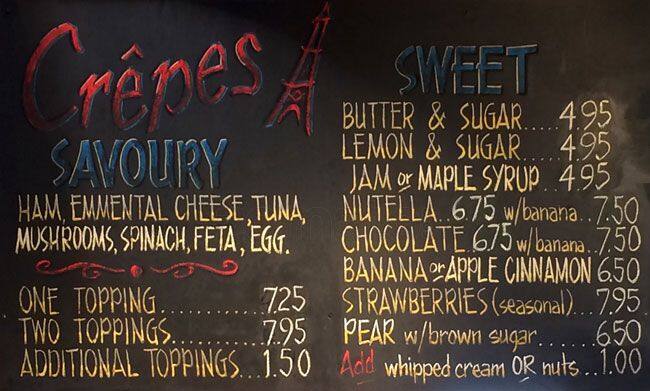 Crêpes
SAVOURY
HAM, EMMENTAL CHEESE, TUNA,
MUSHROOMS, SPINACH, FETA, EGG.
ONE TOPPING ............ 7.25
TWO TOPPINGS.......... 7.95
ADDITIONAL TOPPINGS...1.50
SWEET
BUTTER & SUGAR.....4.95
LEMON & SUGAR....4.95
JAM or MAPLE SYRUP...4.95
NUTELLA..6.75 w/banana...7.50
CHOCOLATE.6.75 w/banana..7.50
BANANA or APPLE CINNAMON 6.50
STRAWBERRIES (seasonal)...7.95
PEAR w/brown sugar.......6.50
Add whipped cream OR nuts...1.00